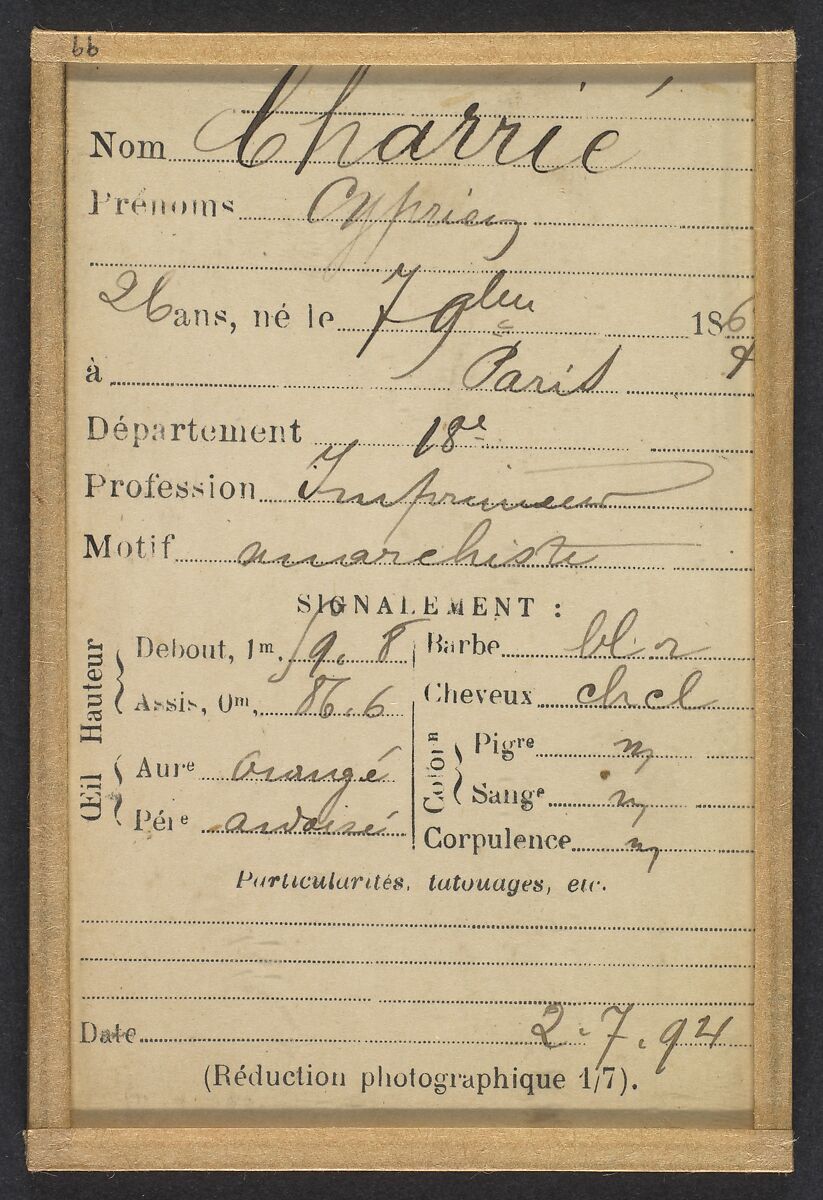 66
Nom Charrié
Prénoms Cyprien
26 ans, né le 7 9bre 1867
à Paris
Département 18e
Profession Imprimeur
Motif anarchiste
SIGNALEMENT :
Hauteur
Debout, 1m. 59. 8
Assis, 0m, 86. 6
Œil
Aure orangé
Pére ardoisé
Barbe bl
Cheveux ch cl
Coloron
Pigre m
Sange m
Corpulence m
Particularités, tatouages, etc.
Date 2. 7. 94
(Réduction photographique 1/7).